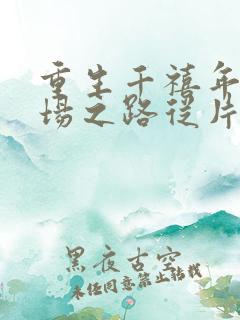 重生千禧年
场之路从片
黑夜古空
未经同意禁止转载